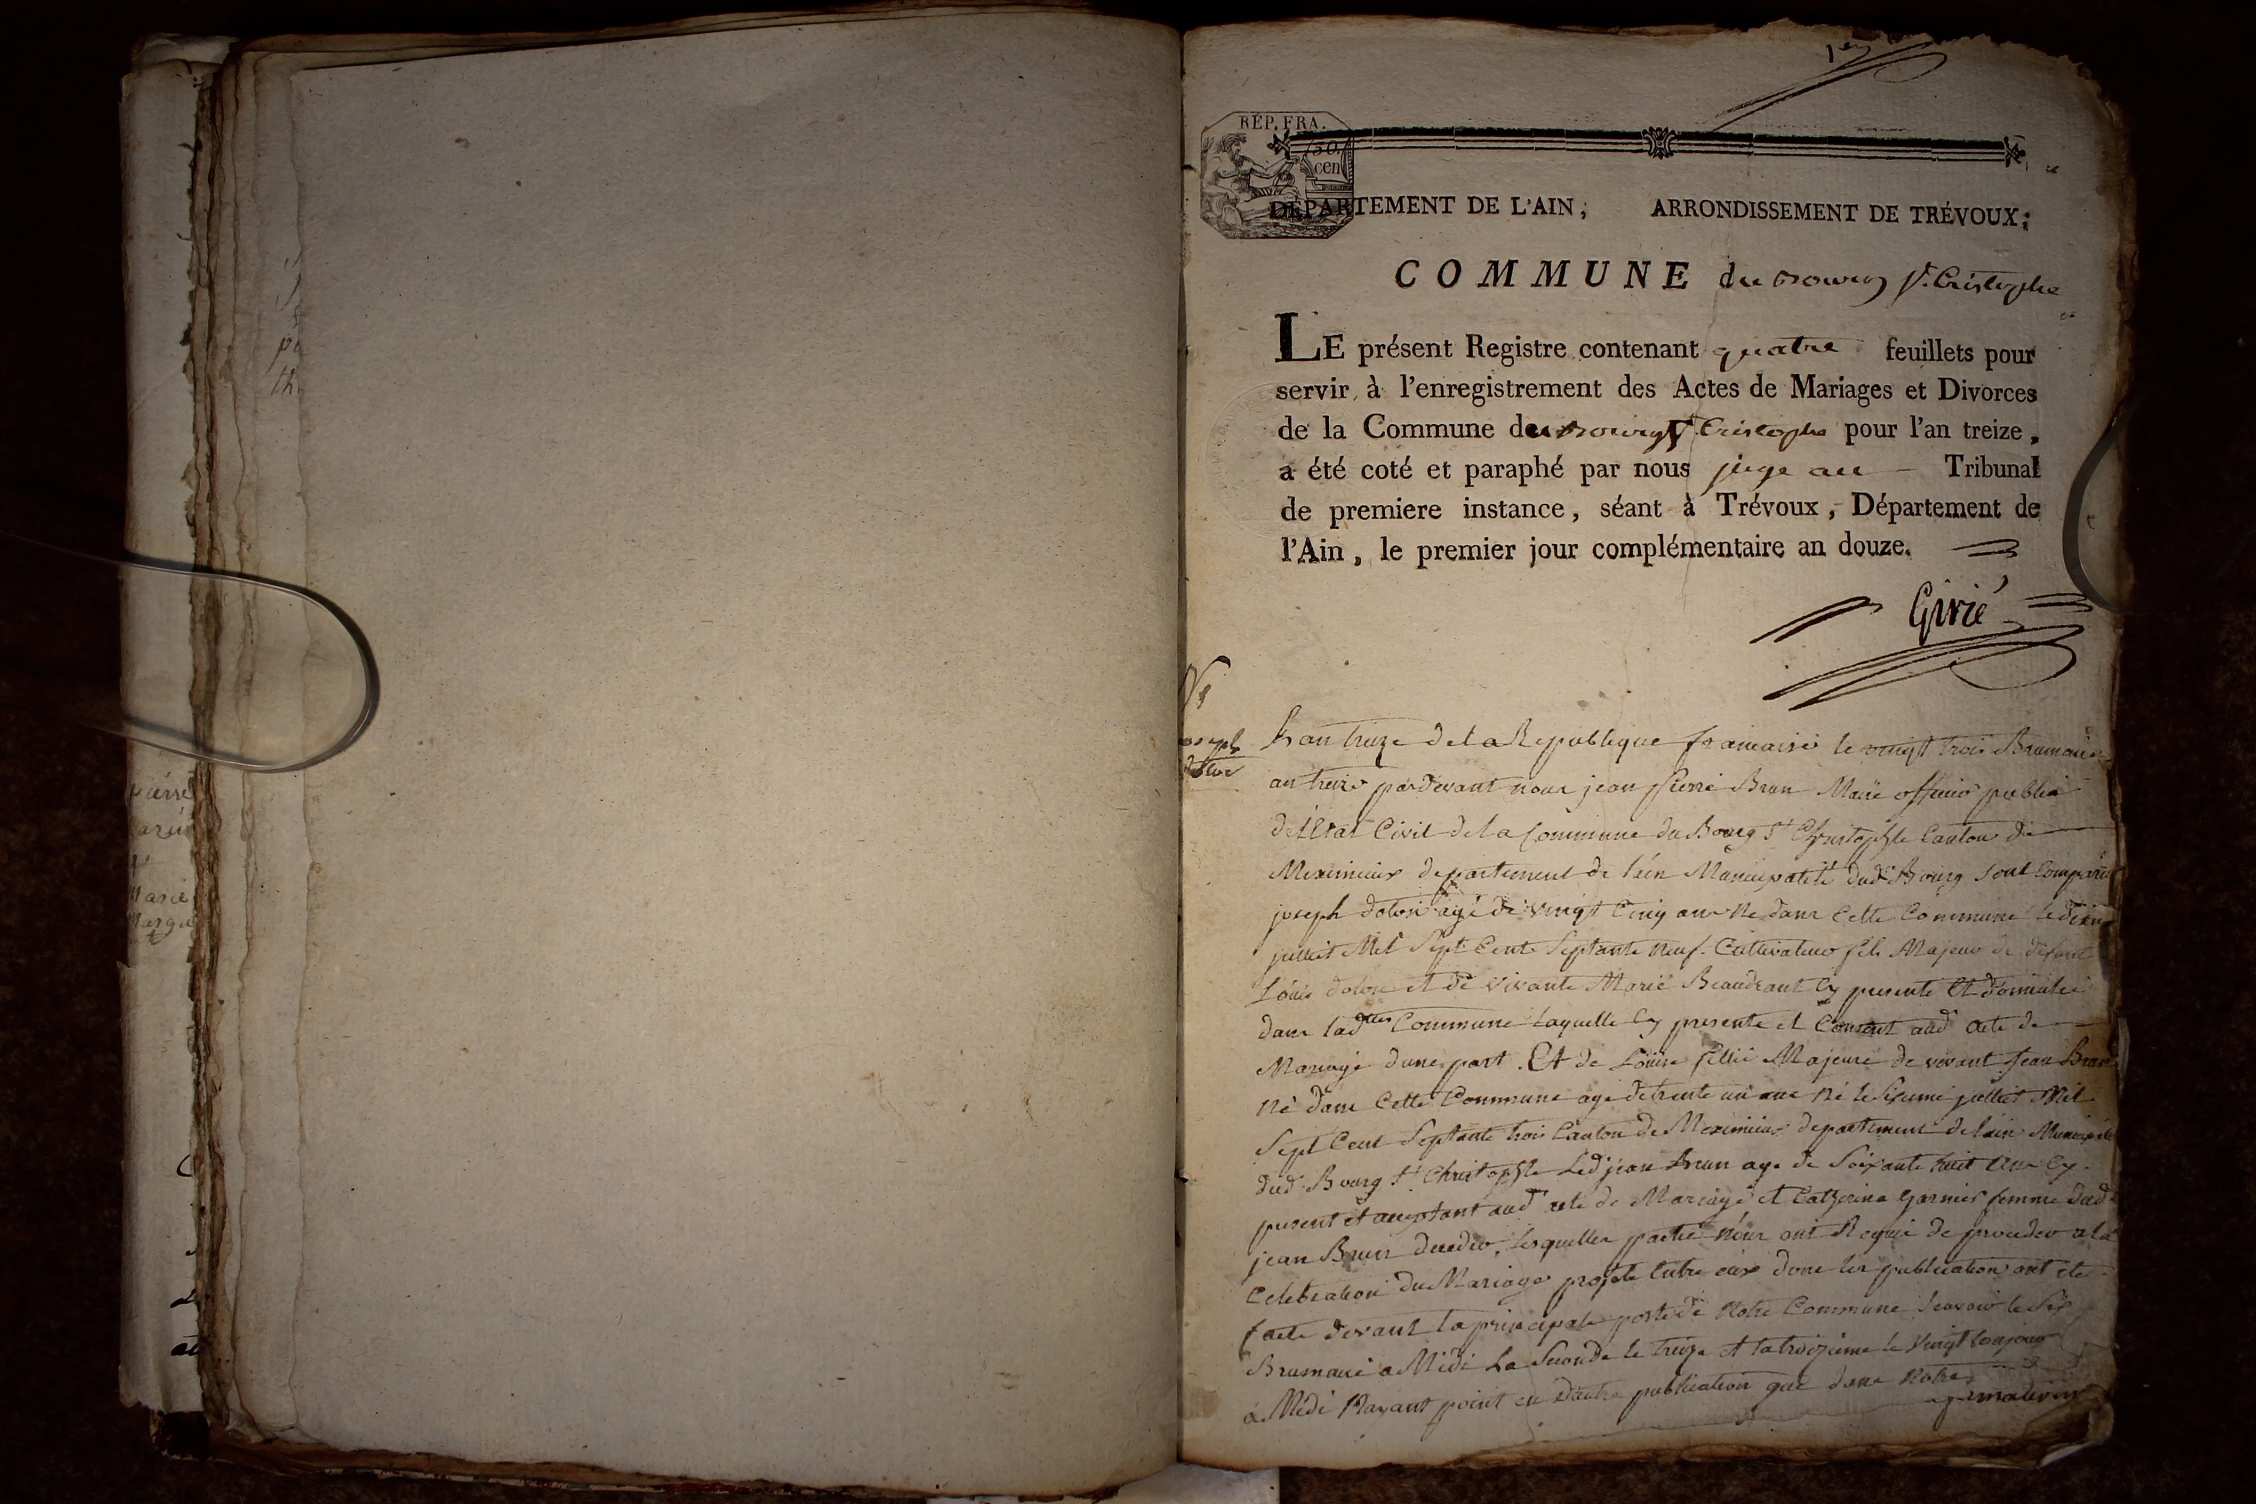 1er
RÉP. FRA.
50.
cen
DÉPARTEMENT DE L'AIN; ARRONDISSEMENT DE TRÉVOUX;
COMMUNE du Bourg St. Cristophe
LE présent Registre contenant quatre feuillets pour
servir à l'enregistrement des Actes de Mariages et Divorces
de la Commune du Bourg St. Cristophe pour l'an treize,
a été coté et paraphé par nous juge au Tribunal
de premiere instance, séant à Trévoux, Département de
l'Ain, le premier jour complémentaire an douze.
Givié
N 1
oseph
L'an treize de la Republique francaise le vingt trois Brumaire
an treize pardevant nous jean pierre Brun Maire officier public
de l'Etat Civil de la Commune du Bourg St Christophle Canton de
Meximieux departement de lain Municipalité dud Bourg sont Comparu
joseph dolon agé de vingt Cinq ans Né dans Cette Commune le
juillet Mil Sept Cent Septante neuf Cultivateur fils Majeur de defunt
Louis dolon et de vivante Marie Beaudrant Cy presente Et domicilié
dans lad Commune laquelle Cy presente et Consent aud acte de
Mariage dune part. Et de Louise fillie Majeure de vivant Jean Brun
Né dans Cette Commune agé de trente un ans Né le Sixieme juilliet Mil
Sept Cent Septante trois Canton de Meximieux departement de lain
dud Bourg St Christophle Led jean Brun age de Soixante huit ans Cy
present et acceptant aud acte de Mariage et Catherine Garnier femme dud
jean Brun lesquelles partie nous ont Requi de proceder a la
Celebration du Mariage projeté Entre eux dont les publication ont eté
faite devant la principale porte de Notre Commune Scavoir le Six
Brumaire a Midi La Seconde le treize et la troizieme le Vingt toujour
a Midi Nayant point eu d'autre publication que dans Notre
pierre
Marie
Margu